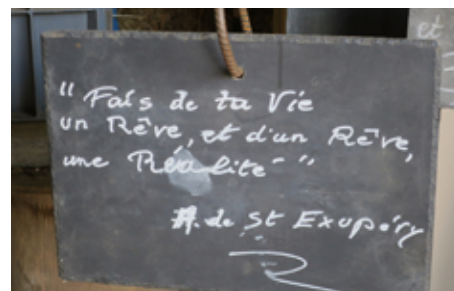 et
" Fais de ta Vie
un Rêve, et d'un Rêve,
une Réalité "
A. de St Exupéry